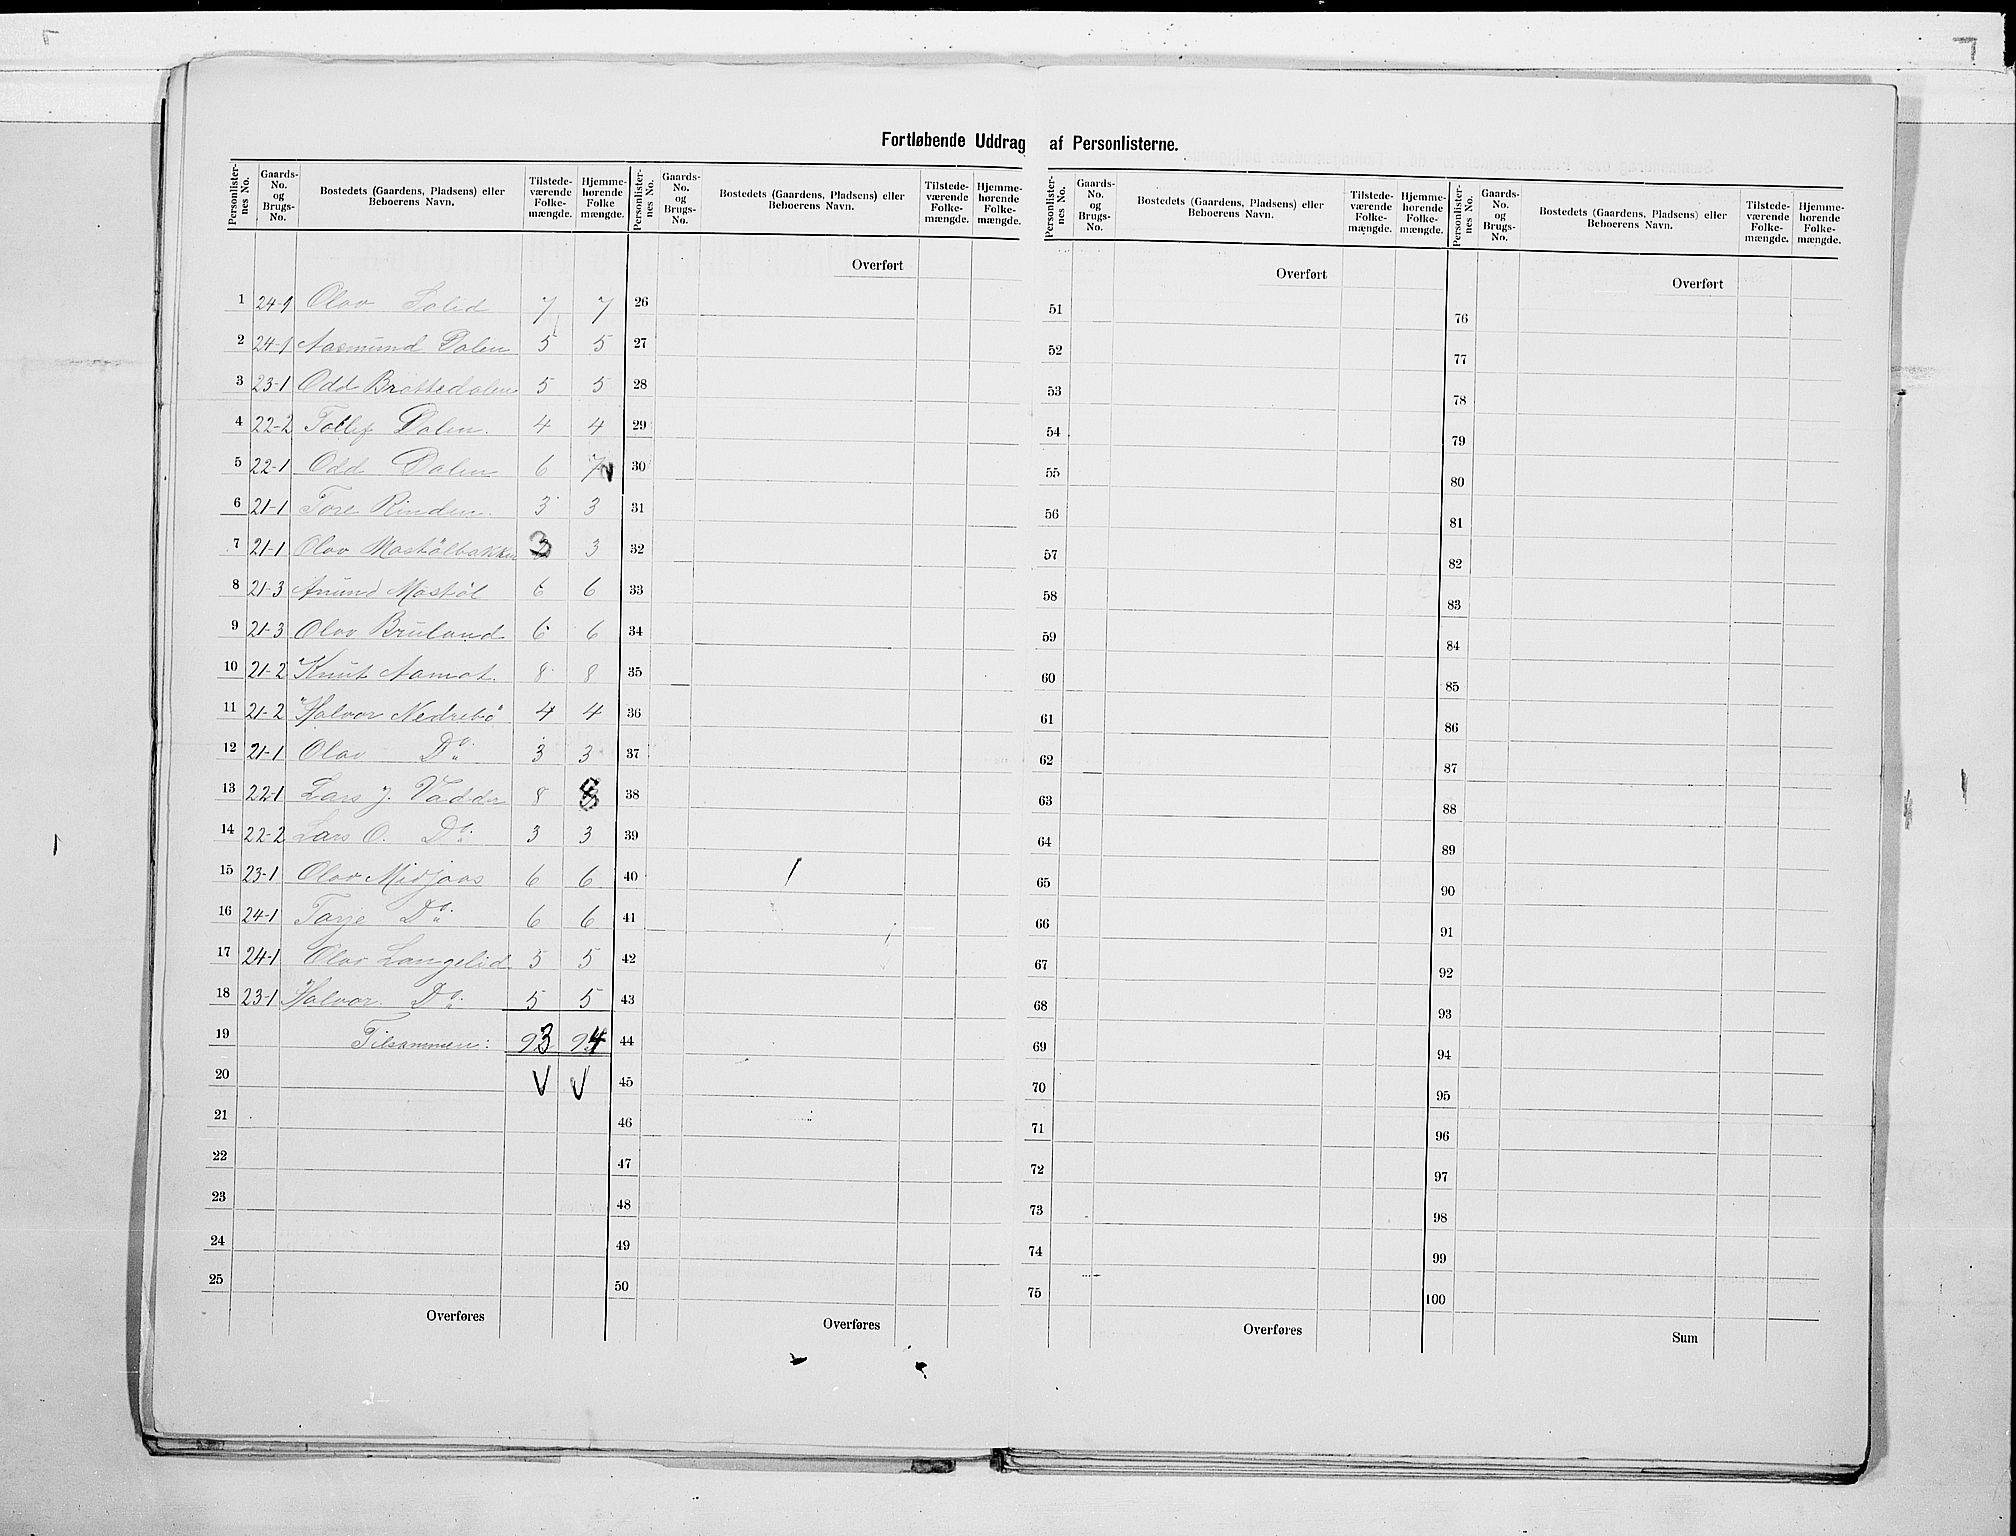 Fortløbende Uddrag af Personlisterne.
Personlister-nes No. | Gaards-No. og Brugs-No. | Bostedets (Gaardens, Pladsens) eller Beboerens Navn. | Tilstede-værende Folke-mængde. | Hjemme-hørende Folke mængde.
Personlister-nes No. | Gaards-No. og Brugs-No. | Bostedets (Gaardens, Pladsens) eller Beboerens Navn. | Tilstede-værende Folke-mængde. | Hjemme-hørende Folke-mængde.
Personlister-nes No. | Gaards-No. og Brugs-No. | Bostedets (Gaardens, Pladsens) eller Beboerens Navn. | Tilstede-værende Folke-mængde. | Hjemme-hørende Folke-mængde.
Personlister-nes No. | Gaards-No. og Brugs-No. | Bostedets (Gaardens, Pladsens) eller Beboerens Navn. | Tilstede-værende Folke-mængde. | Hjemme-hørende Folke-mængde.
1 24-1 Olav Lolid 7 7
2 24-1 Aasmund Dalen 5 5
3 23-1 Odd Brottedalen 5 5
4 22-2 Tollef Dalen. 4 4
5 22-1 Odd Dalen 6 7
6 21-1 Tore Rinden. 3 3
7 21-1 Olav Mostølbakken 3 3
8 21-3 Anund Mostøl 6 6
9 21-3 Olav Bruland 6 6
10 21-2 Knut Aamot. 8 8
11 21-2 Halvor Nedrebø 4 4
12 21-1 Olav Do. 3 3
13 22-1 Lars J. Vadder 8 8
14 22-2 Lars O. Do. 3 3
15 23-1 Olav Midjaas 6 6
16 24-1 Tarje Do. 6 6
17 24-1 Olav Langelid 5 5
18 23-1 Halvor. Do. 5 5
19 Tilsammen: 93 94
20 V V
21
22
23
24
25
Overføres
Overført
26
27
28
29
30
31
32
33
34
35
36
37
38
39
40
41
42
43
44
45
46
47
48
49
50
Overføres
Overført
51
52
53
54
55
56
57
58
59
60
61
62
63
64
65
66
67
68
69
70
71
72
73
74
75
Overføres
Overført
76
77
78
79
80
81
82
83
84
85
86
87
88
89
90
91
92
93
94
95
96
97
98
99
100
Sum